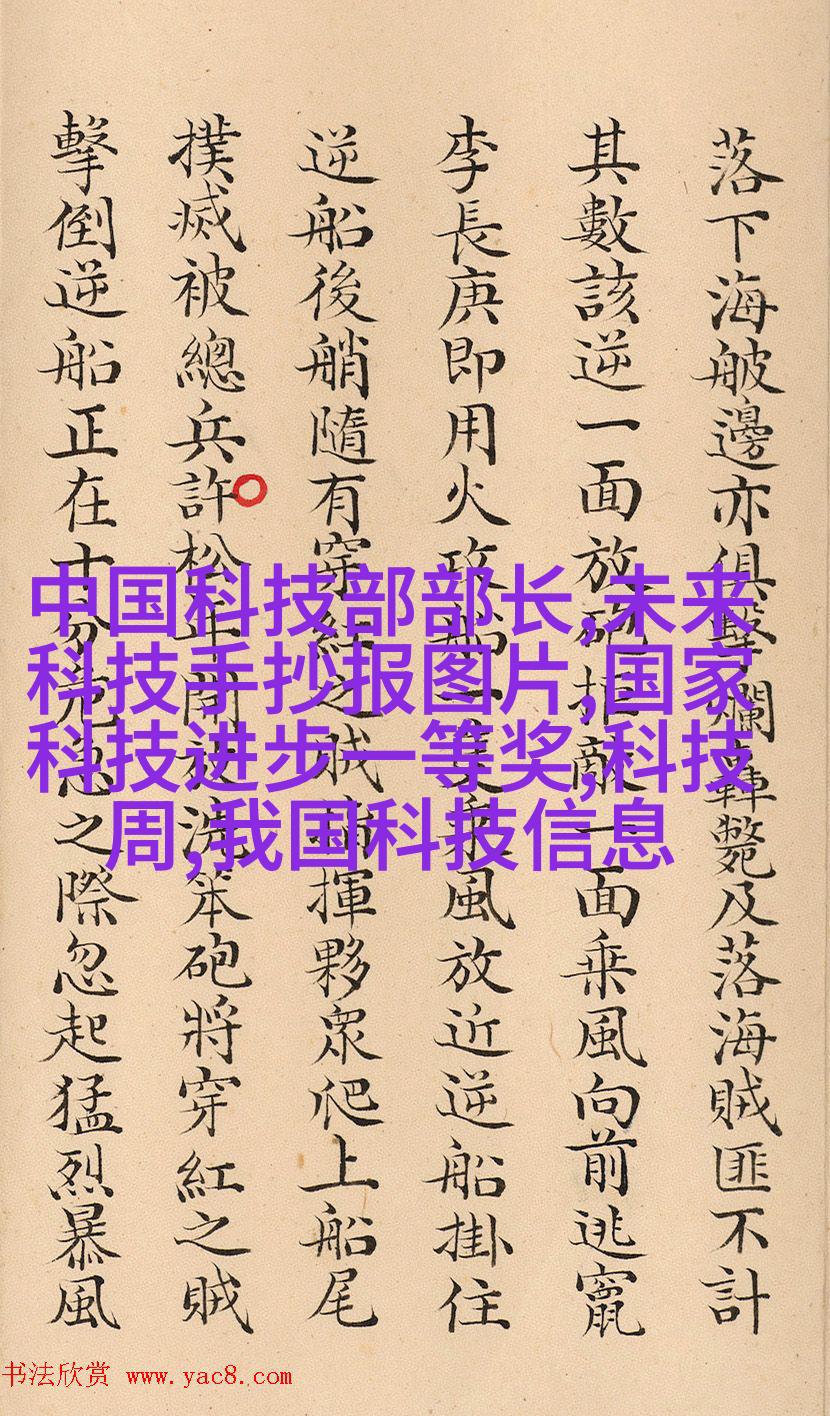 落下海邊亦俱擊爛轟斃及落海賊匪不計
其數該逆一面放砲拒敵一面乘風向前逃竄
李長庚即用火攻船一隻乘風放近逆船掛住
逆船後艄隨有穿紅之賊指揮夥眾爬上船尾
撲滅被總兵許松年開放笨砲將穿紅之賊
擊倒逆船正在十分危急之際忽起猛烈暴風
中国科技部部长,未来
科技手抄报图片,国家
科技进步一等奖,科技
周,我国科技信息
书法欣赏 www.yac8.com